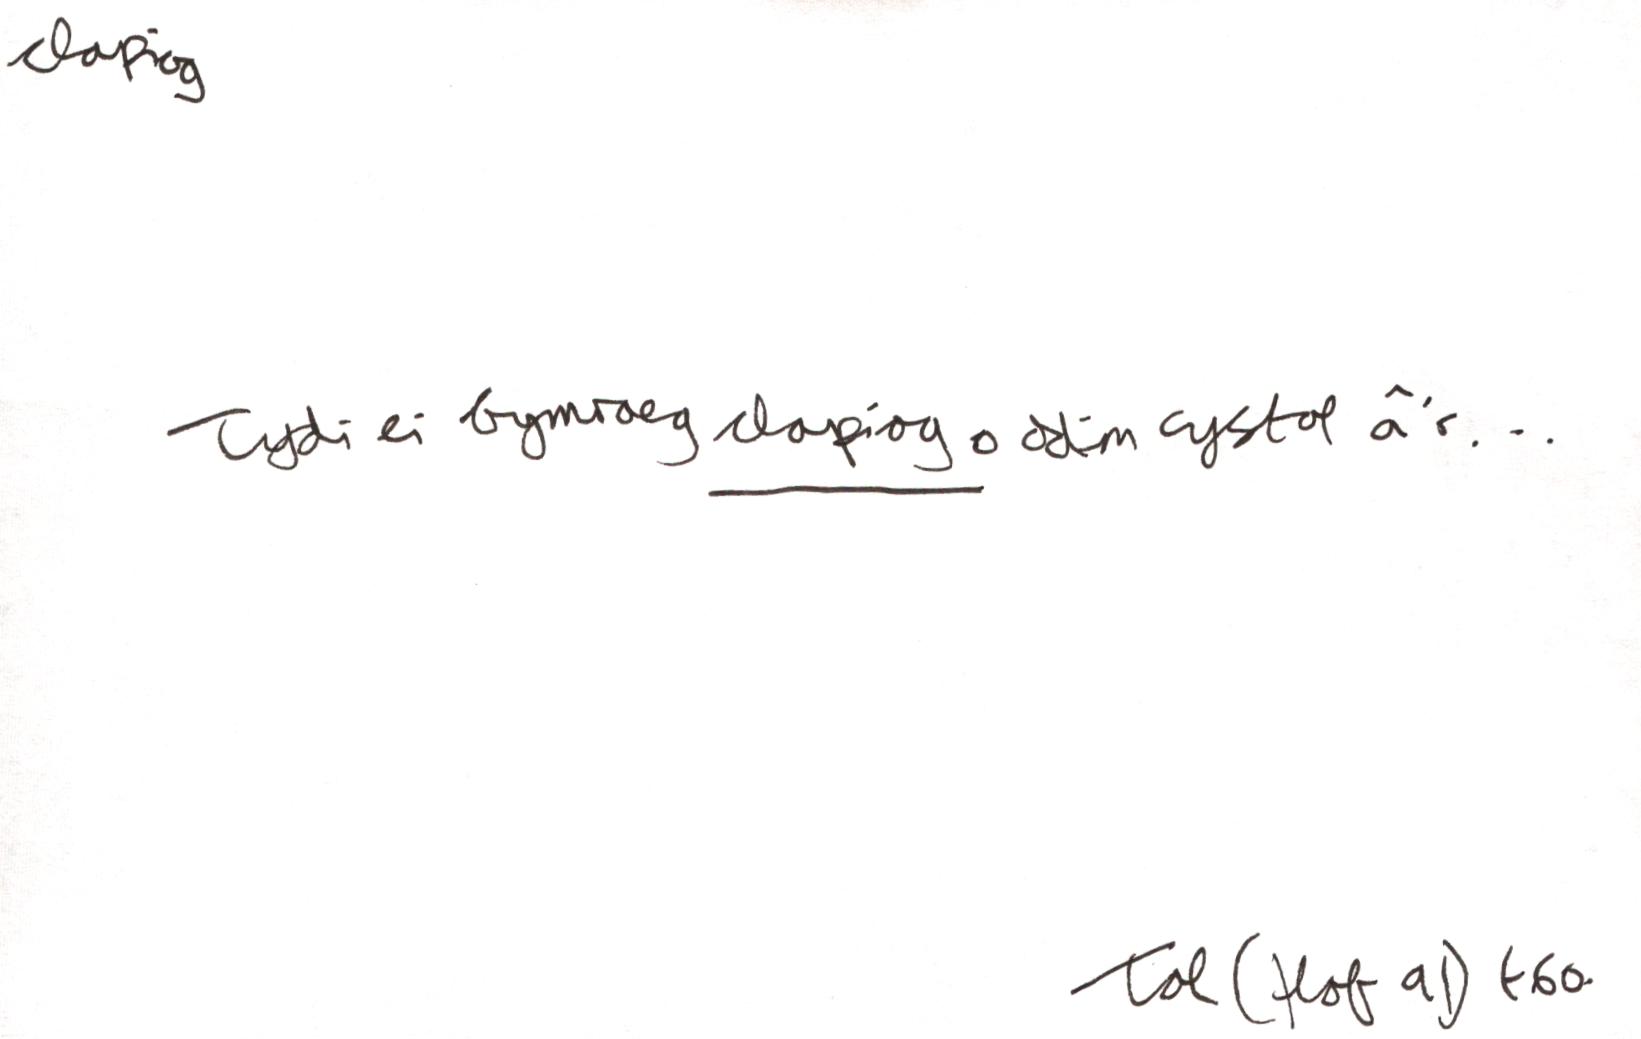 clapiog
Tydi ei bymraeg clapiog o ddim cystal â'r...
Tal (Hof 91) t60.